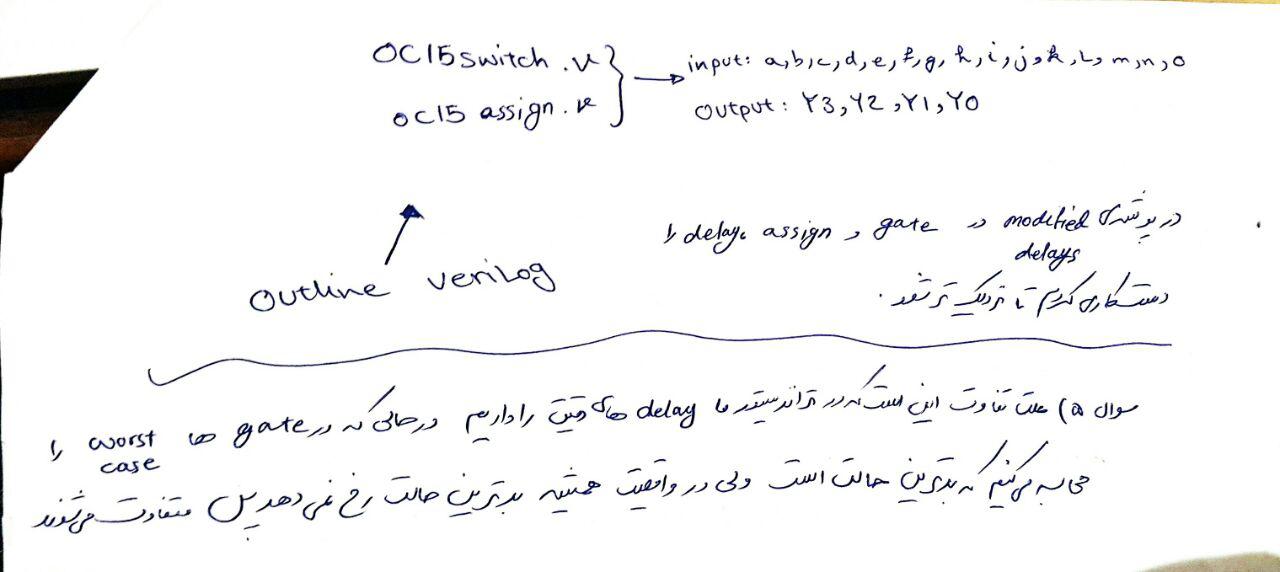 OC15switch.v
OC15 assign.v
input: a,b,c,d,e,f,g,h,i,j,k,L,m,n,o
Output: Y3,Y2,Y1,Y0
Outline verilog
در پوشه‌ی modified delays در gate و assign، delay را
دستکاری کردیم تا نزدیک تر شود.
سوال ۵) علت تفاوت این است که در ترانزیستور ما delay های دقیق را داریم در حالی که در gate ها worst case را
محاسبه می‌کنیم که بدترین حالت است ولی در واقعیت همیشه بدترین حالت رخ نمی‌دهد پس متفاوت می‌شوند